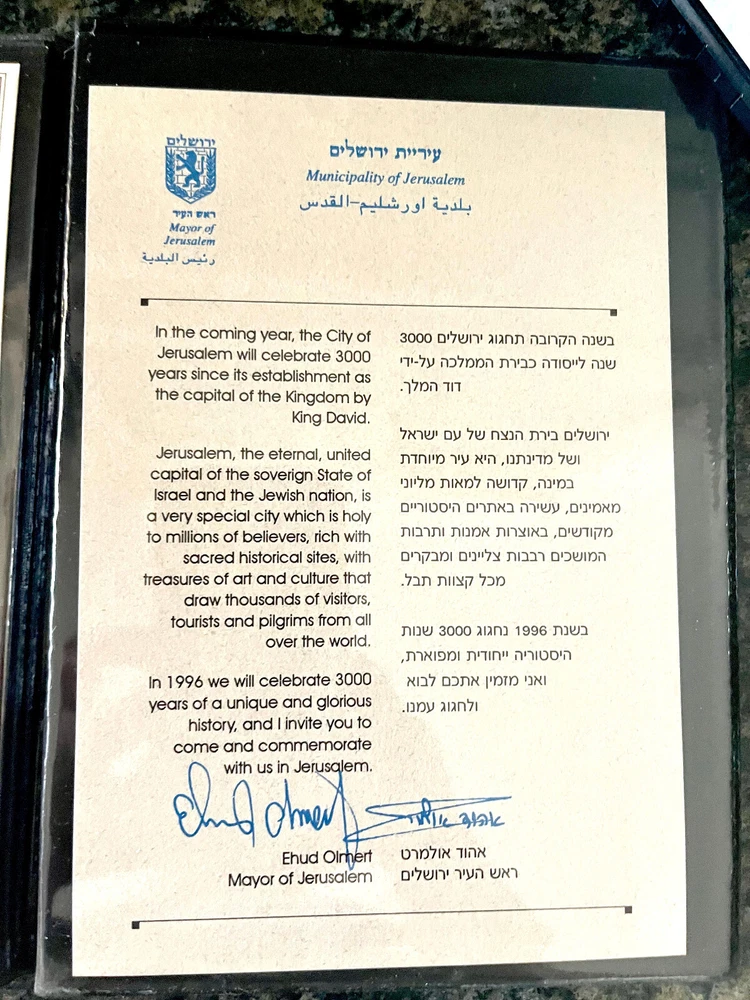 ירושלים
ראש העיר
Mayor of
Jerusalem
رئيس البلدية
עיריית ירושלים
Municipality of Jerusalem
بلدية اورشليم-القدس
In the coming year, the City of
Jerusalem will celebrate 3000
years since its establishment as
the capital of the Kingdom by
King David.
Jerusalem, the eternal, united
capital of the soverign State of
Israel and the Jewish nation, is
a very special city which is holy
to millions of believers, rich with
sacred historical sites, with
treasures of art and culture that
draw thousands of visitors,
tourists and pilgrims from all
over the world.
In 1996 we will celebrate 3000
years of a unique and glorious
history, and I invite you to
come and commemorate
with us in Jerusalem.
Ehud Olmert
Ehud Olmert
Mayor of Jerusalem
בשנה הקרובה תחגוג ירושלים 3000
שנה לייסודה כבירת הממלכה על-ידי
דוד המלך.
ירושלים בירת הנצח של עם ישראל
ושל מדינתנו, היא עיר מיוחדת
במינה, קדושה למאות מליוני
מאמינים, עשירה באתרים היסטוריים
מקודשים, באוצרות אמנות ותרבות
המושכים רבבות צליינים ומבקרים
מכל קצוות תבל.
בשנת 1996 נחגוג 3000 שנות
היסטוריה ייחודית ומפוארת,
ואני מזמין אתכם לבוא
ולחגוג עמנו.
אהוד אולמרט
אהוד אולמרט
ראש העיר ירושלים